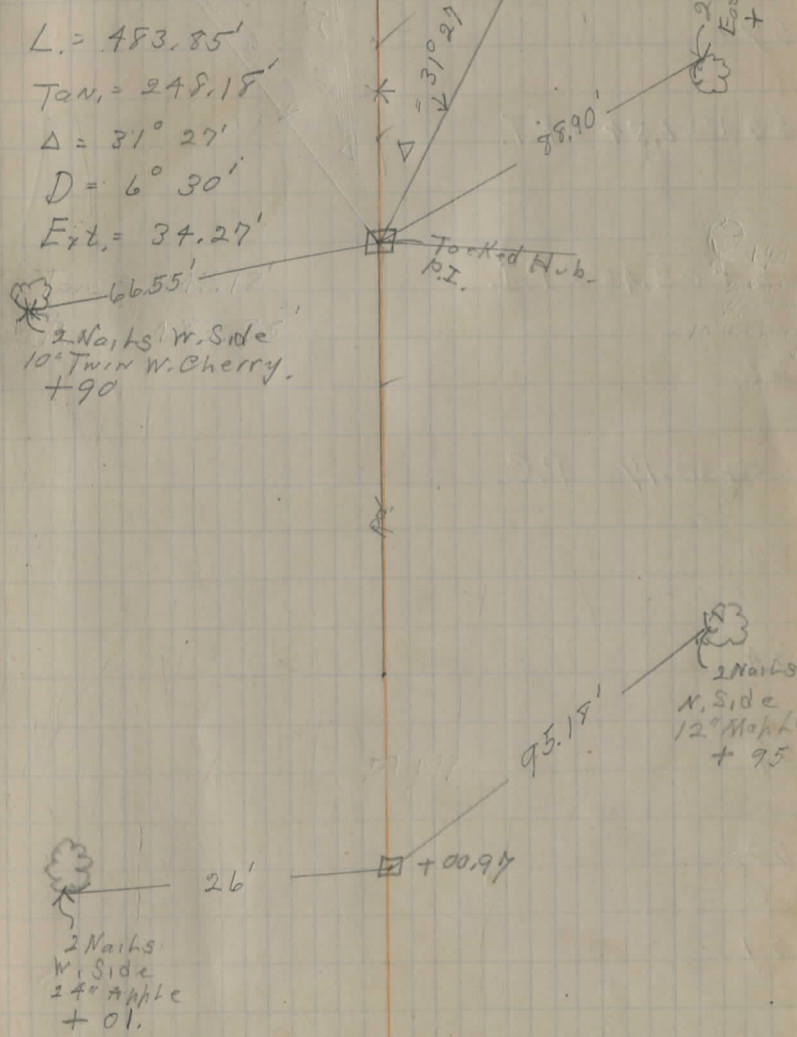 L. = 483.85'
Tan. = 248.18'
Δ = 31° 27'
D = 6° 30'
Ext. = 34.27'
Δ = 31° 27
88.90'
2
Eas
+
Tacked Hub.
P.I.
66.55'
2 Nails W. Side
10" Twin W. Cherry.
+90
2 Nails
N. Side
12" Mapl
+ 95
95.18'
26'
+00.97
2 Nails
W. Side
24" Apple
+ 01.